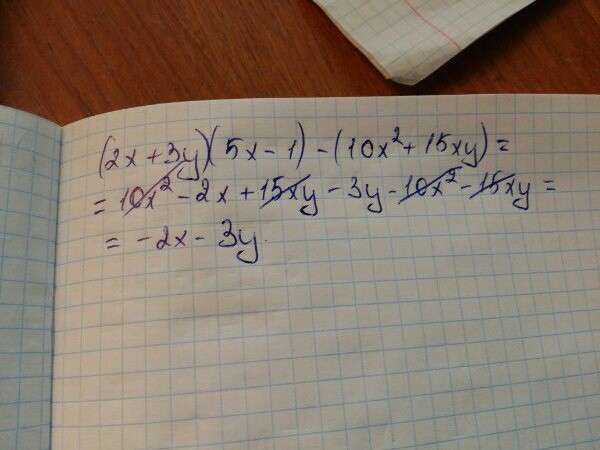 (2x+3y)(5x-1)-(10x²+15xy)=
=10x²-2x+15xy-3y-10x²-15xy=
=-2x-3y.